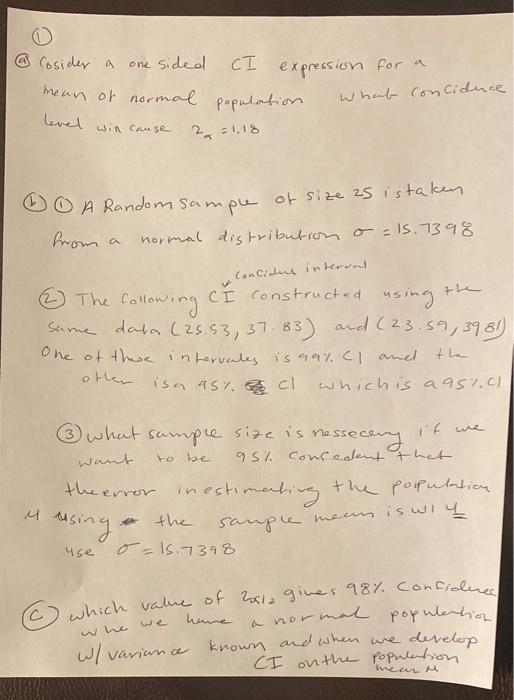 ①
ⓐ Cosider a one sided CI expression for a
mean of normal population what concidence
level win cause z_α = 1.18
ⓑ ① A Random sample of size 25 is taken
from a normal distribution σ = 15.7398
concident interval
② The following CI constructed using the
same data (25.53, 37.83) and (23.59, 39.81)
One of these intervales is 99% CI and the
other is a 95% CI which is a 95% CI
③ what sample size is nessecery if we
want to be 95% concedent that
the error in estimating the population
M using the sample mean is w/
use σ = 15.7398
ⓒ which value of zα/2 gives 98% Confidence
we have a normal population
w/ variance known and when we develop
CI on the population
mean M